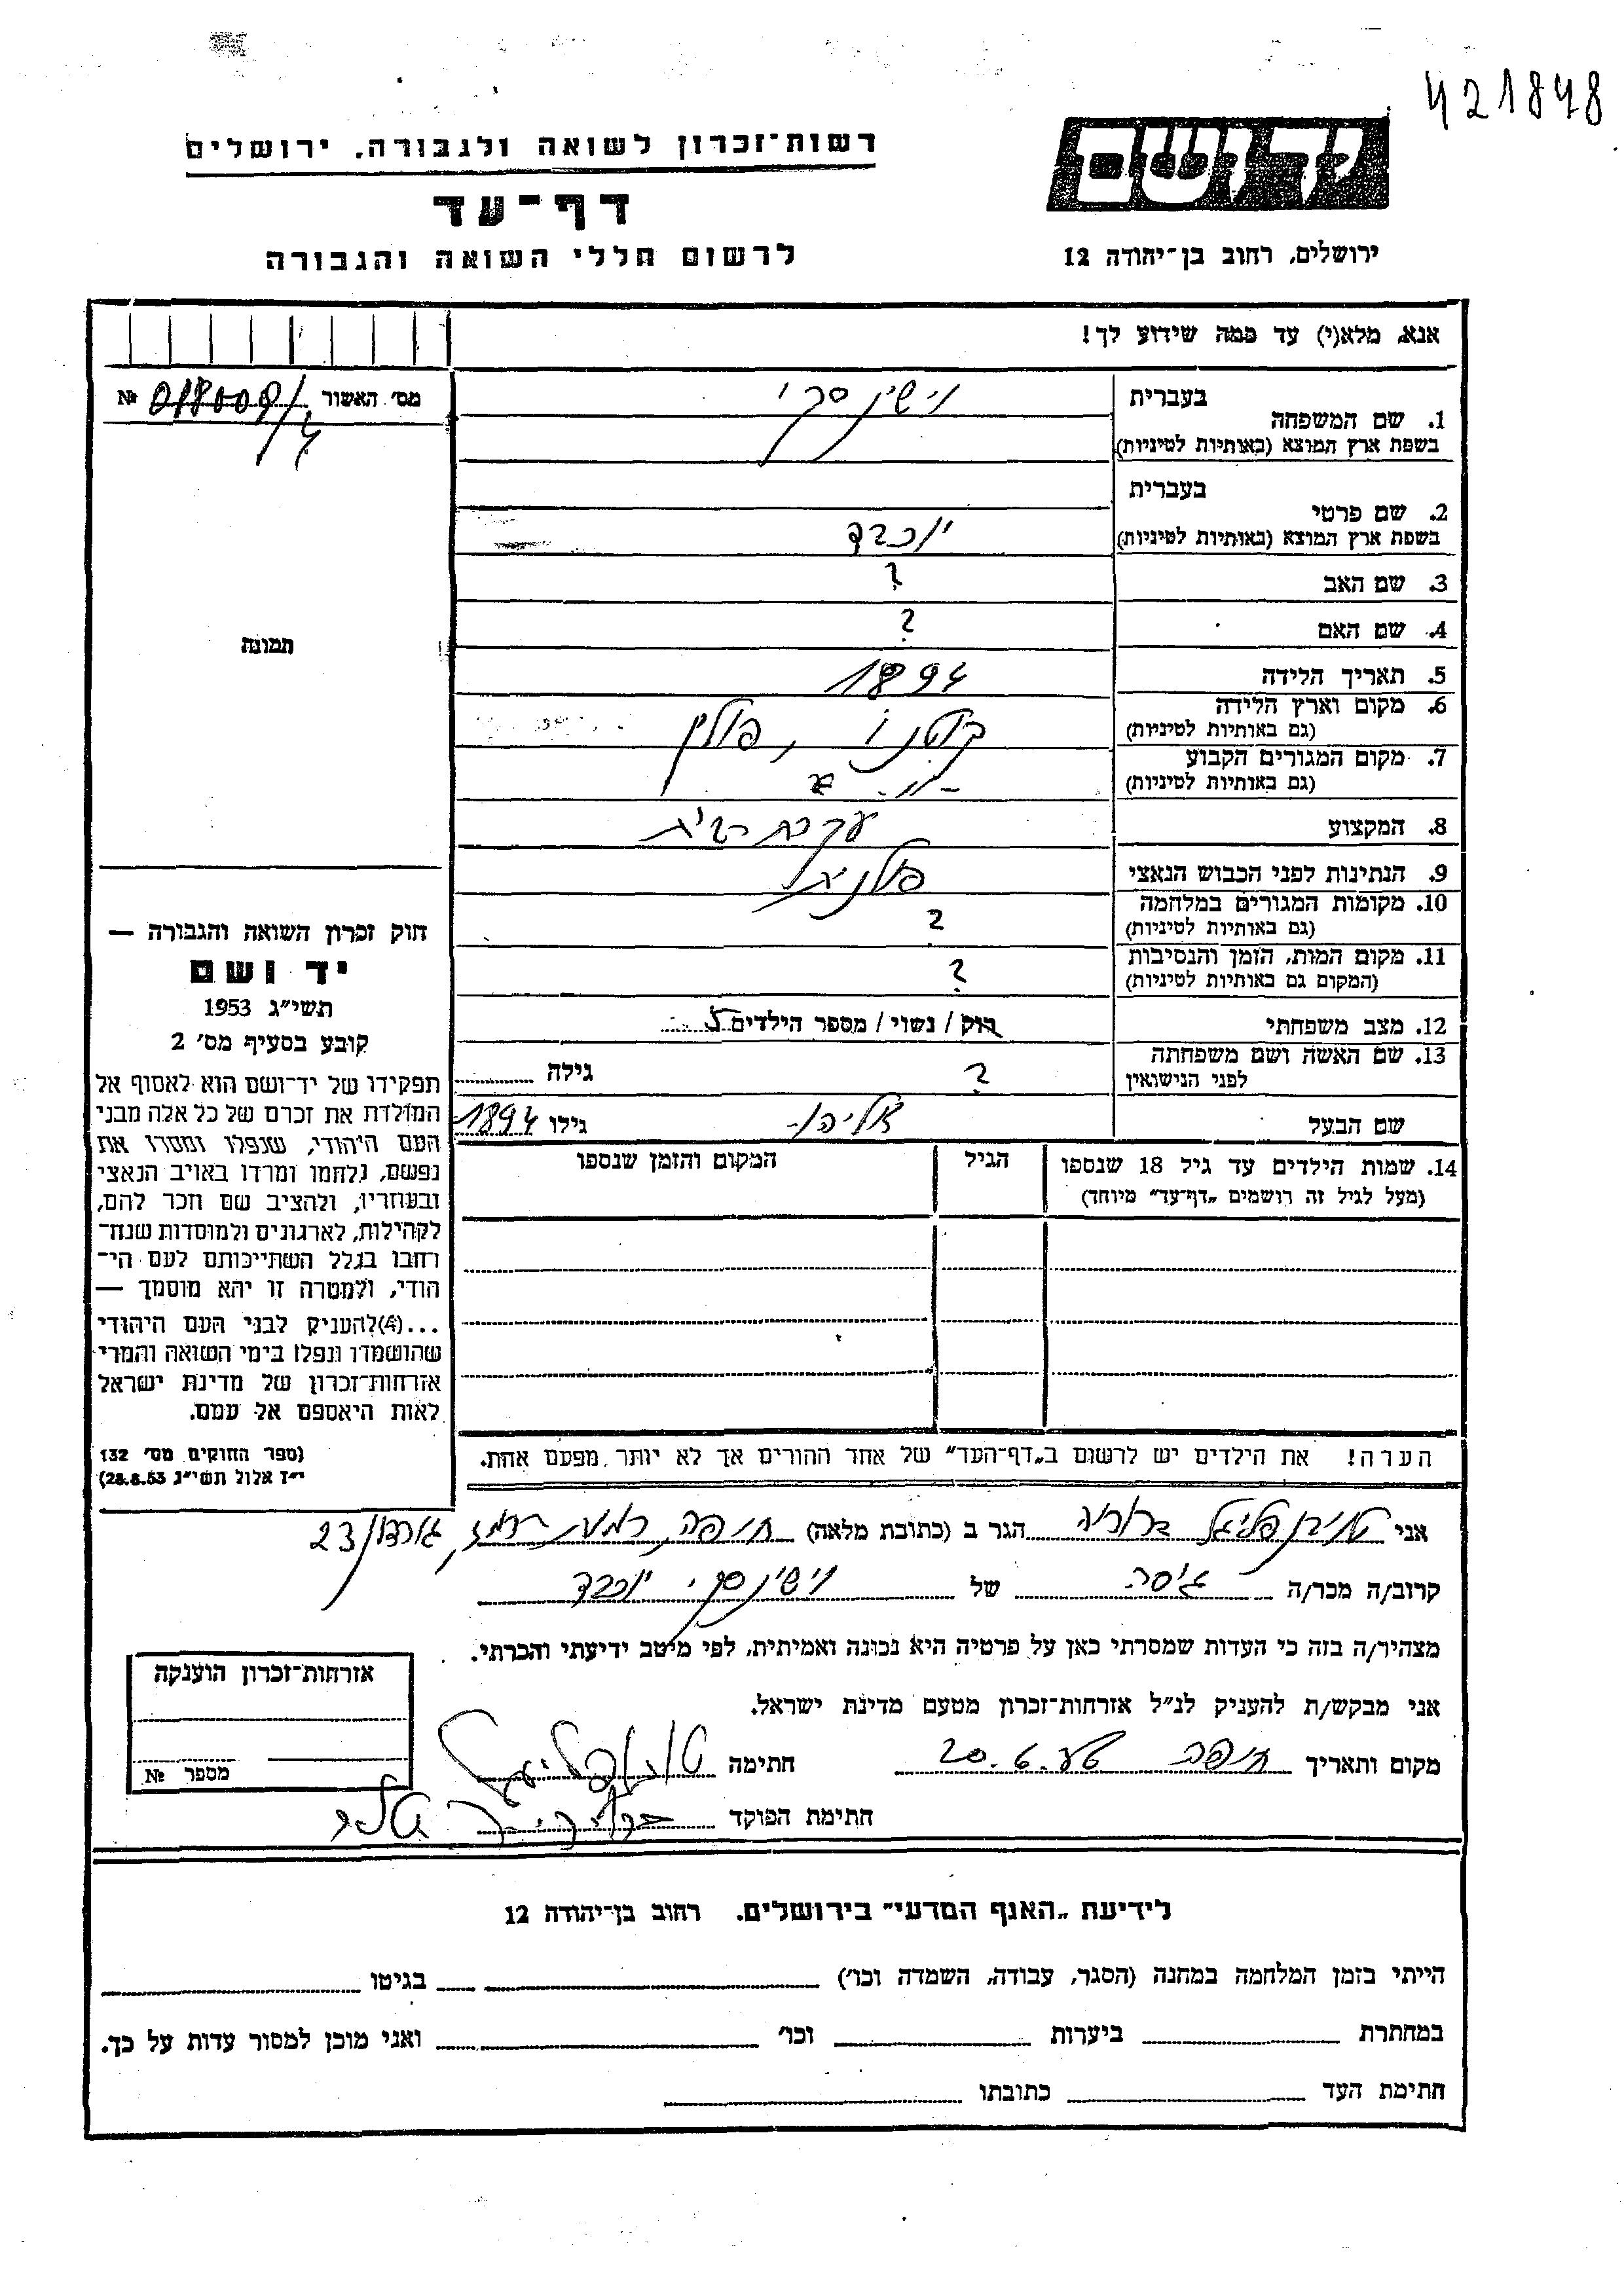 421848
רשות־זכרון לשואה ולגבורה, ירושלים
ידושם
דף־עד
לרשום חללי השואה והגבורה
ירושלים, רחוב בן־יהודה 12
אנא, מלא(י) עד כמה שידוע לך!
מס׳ האשור № 018009/
תמונה
חוק זכרון השואה והגבורה —
יד ושם
תשי״ג 1953
קובע בסעיף מס׳ 2
תפקידו של יד־ושם הוא לאסוף אל
המולדת את זכרם של כל אלה מבני
העם היהודי, שנפלו ומסרו את
נפשם, נלחמו ומרדו באויב הנאצי
ובעוזריו, ולהציב שם וזכר להם,
לקהילות, לארגונים ולמוסדות שנח־
רבו בגלל השתייכותם לעם הי־
הודי, ולמטרה זו יהא מוסמך —
...(4)להעניק לבני העם היהודי
שהושמדו ונפלו בימי השואה והמרי
אזרחות־זכרון של מדינת ישראל
לאות היאספם אל עמם.
(ספר החוקים מס׳ 132
י״ז אלול תשי״ג 28.8.53)
1. שם המשפחה בעברית וישינסקי
בשפת ארץ המוצא (באותיות לטיניות)
2. שם פרטי בעברית
בשפת ארץ המוצא (באותיות לטיניות) יוכבד
3. שם האב ?
4. שם האם ?
5. תאריך הלידה 1894
6. מקום וארץ הלידה קוטנו, פולין
(גם באותיות לטיניות)
7. מקום המגורים הקבוע -"-
(גם באותיות לטיניות)
8. המקצוע עקרת בית
9. הנתינות לפני הכבוש הנאצי פולנית
10. מקומות המגורים במלחמה ?
(גם באותיות לטיניות)
11. מקום המות, הזמן והנסיבות ?
(המקום גם באותיות לטיניות)
12. מצב משפחתי רוק / נשוי / מספר הילדים 5
13. שם האשה ושם משפחתה ? גילה
לפני הנישואין
שם הבעל אליהו גילו 1894
14. שמות הילדים עד גיל 18 שנספו הגיל המקום והזמן שנספו
(מעל לגיל זה רושמים „דף־עד״ מיוחד)
הערה! את הילדים יש לרשום ב„דף־העד״ של אחד ההורים אך לא יותר מפעם אחת.
אני הגר ב (כתובת מלאה) חיפה, רמת רמז, גורדון 23
קרוב/ה מכר/ה גיסה של וישינסקי יוכבד
מצהיר/ה בזה כי העדות שמסרתי כאן על פרטיה היא נכונה ואמיתית, לפי מיטב ידיעתי והכרתי.
אני מבקש/ת להעניק לנ״ל אזרחות־זכרון מטעם מדינת ישראל.
מקום ותאריך חיפה 20.6. חתימה
חתימת הפוקד
אזרחות־זכרון הוענקה
מספר №
לידיעת „האגף המדעי״ בירושלים, רחוב בן־יהודה 12
הייתי בזמן המלחמה במחנה (הסגר, עבודה, השמדה וכו׳) בגיטו
במחתרת ביערות וכו׳ ואני מוכן למסור עדות על כך.
חתימת העד כתובתו